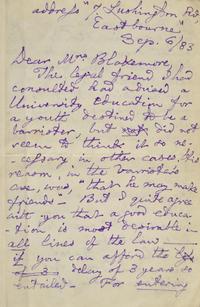 address "7 Lushington Rd,
Eastbourne"
Sep. 6/83
Dear Mrs Blakemore,
The legal friend I had
consulted had advised a
University education for
a youth destined to be a
barrister, but did not
seem to think it so ne-
-cessary in other cases: his
reason, in the barrister's
case, was, "that he may make
friends". But I quite agree
with you that a good educa-
-tion is most desirable in
all lines of the law
if you can afford the
of 3 delay of 3 years so
entailed. For entering